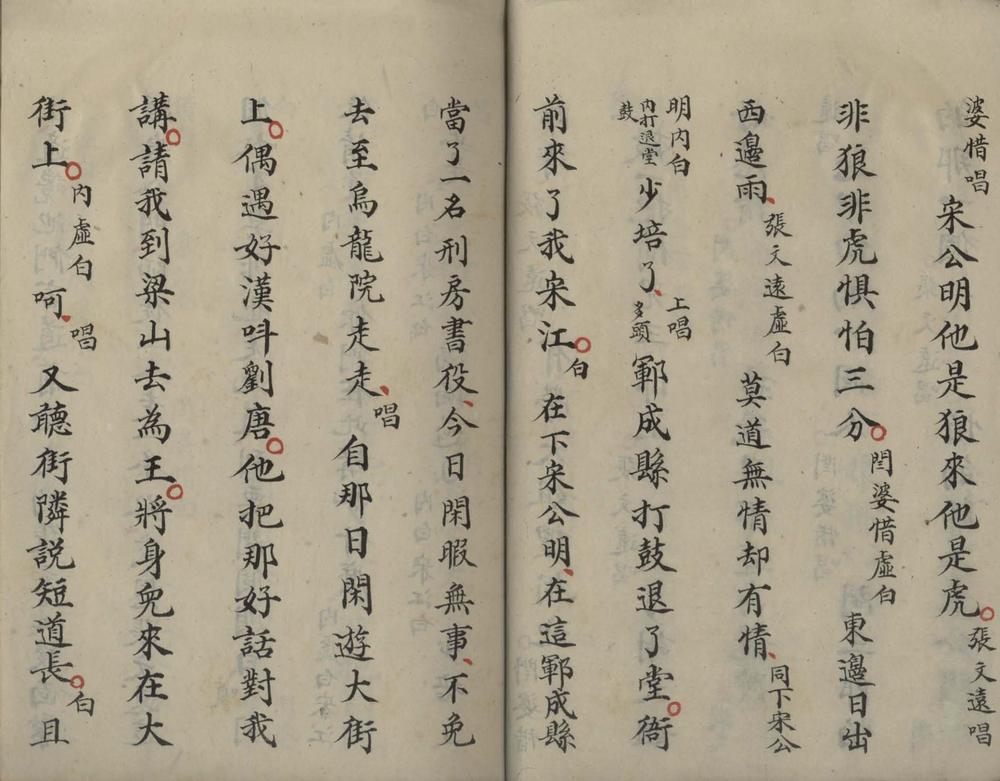 婆惜唱宋公明他是狼來他是虎張文遠唱
非狼非虎惧怕三分閆婆惜虛白東邊日出
西邊雨張文遠虛白莫道無情却有情同下宋公
明內白內打退堂鼓少培了上唱多頭鄆成縣打鼓退了堂衙
前來了我宋江白在下宋公明在這鄆成縣
當了一名刑房書役今日閑暇無事不免
去至烏龍院走走唱自那日閑遊大街
上偶遇好漢呌劉唐他把那好話對我
講請我到梁山去為王將身兒來在大
街上內虛白呵唱又聽街隣説短道長白且